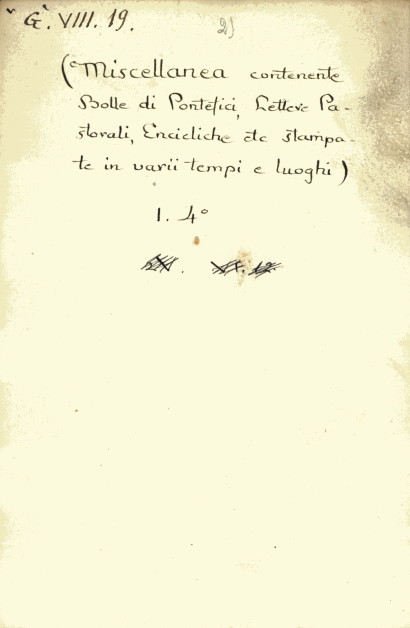 G. VIII. 19.
2)
(Miscellanea contenente
Bolle di Pontefici, Lettere Pa-
storali, Encicliche etc stampa-
te in varii tempi e luoghi)
1. 4°